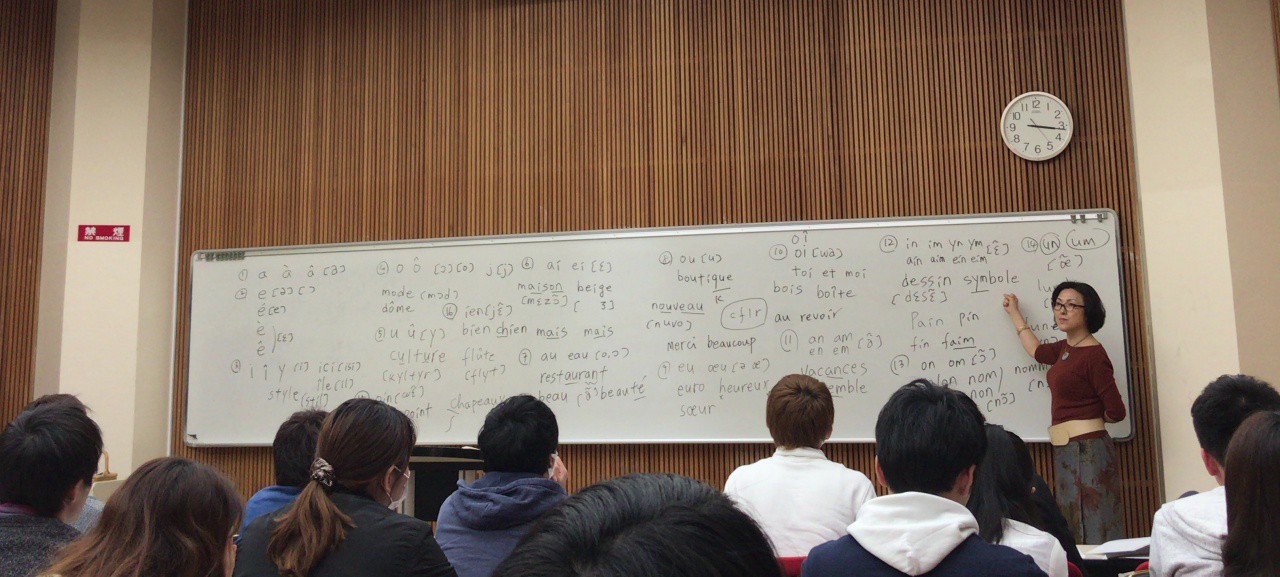 禁煙
NO SMOKING
① a à â [a]
② e [ə] [ ]
é [e]
è
ê } [ɛ]
③ i î y [i] ici [isi]
île [il]
style [stil]
④ o ô [ɔ] [o] j [j]
mode [mɔd]
dôme
⑯ ien [jɛ̃]
bien chien
⑤ u û [y]
culture flûte
[kyltyr] [flyt]
point
⑥ ai ei [ɛ]
maison beige
[mɛzɔ̃] [ ʒ]
mais mais
⑦ au eau [o, ɔ]
restaurant
chapeaux beau beauté
ʃ
⑧ ou [u]
boutique
k
nouveau
[nuvo]
merci beaucoup
cflr
⑨ eu œu [ə œ]
euro heureux
sœur
oî
⑩ oi [wa]
toi et moi
bois boîte
au revoir
⑪ an am
en em [ɑ̃]
vacances
⑫ in im yn ym
ain aim ein eim [ɛ̃]
dessin symbole
[dɛsɛ̃]
pain pin
fin faim
⑬ on om [ɔ̃]
nom
non
[nɔ̃]
⑭ un um
[œ̃]
12 1 2 3 4 5 6 7 8 9 10 11